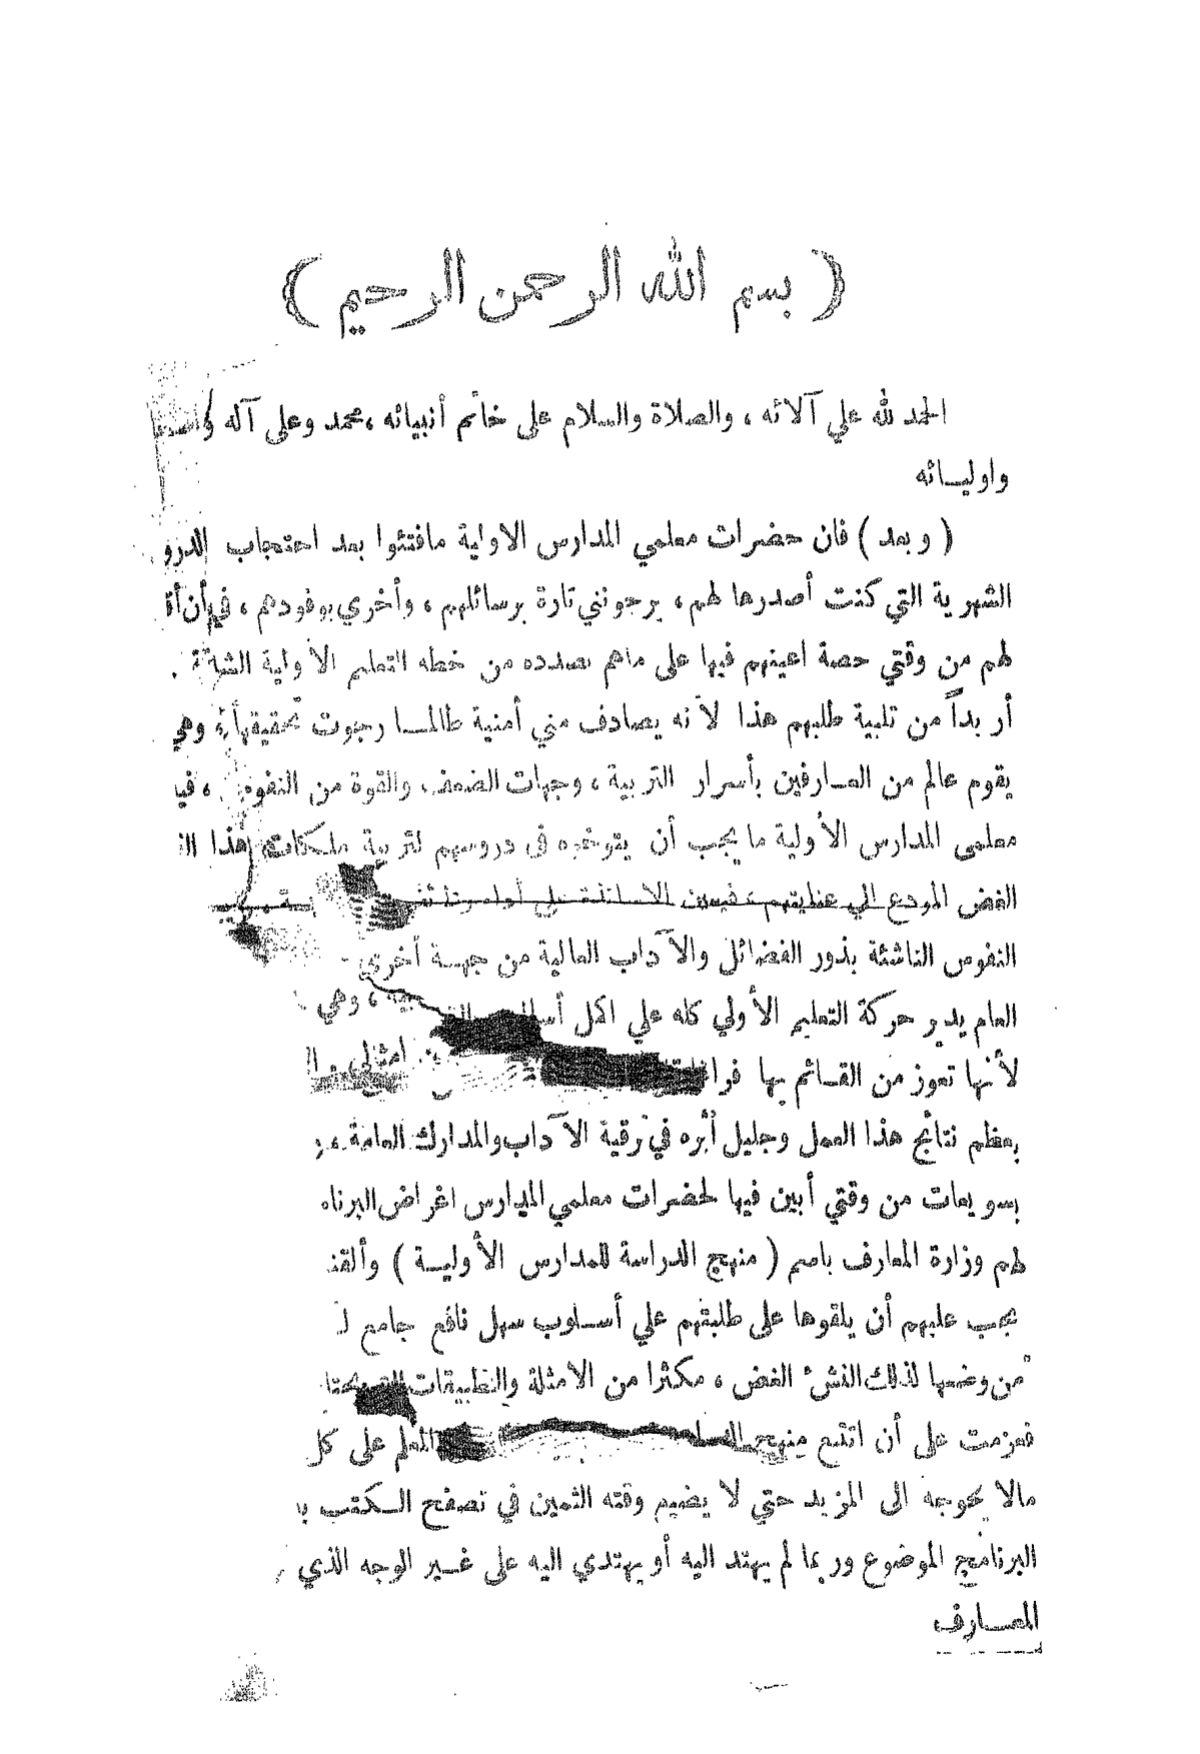 ( بسم الله الرحمن الرحيم )
الحمد لله علي آلائه ، والصلاة والسلام على خاتم أنبيائه ، محمد وعلى آله
واوليائه
( وبعد ) فان حضرات معلمي المدارس الاولية مافتئوا بعد احتجاب الدرو
الشهرية التي كنت أصدرها لهم ، يرجونني تارة برسائلهم ، وأخري بوفودهم ، في أن
لهم من وقتي حصة اعينهم فيها على ماهم بصدده من خطه التعليم الاولية
أر بداً من تلبية طلبهم هذا لأنه يصادف مني أمنية طالما رجوت تحقيقها وهي
يقوم عالم من العارفين بأسرار التربية ، وجهات الضعف والقوة من النفوس ،
معلمى المدارس الأولية ما يجب أن يتوخوه فى دروسهم لتربية ملكات هذا
الغض المودع الي عنايتهم
النفوس الناشئة بذور الفضائل والآداب العالية من جهة أخرى
العام يدير حركة التعليم الأولي كله علي اكمل ، وهي
لأنها تعوز من القائم بها امثالى
بعظم نتائج هذا العمل وجليل أثره في ترقية الآداب والمدارك العامة
بسويعات من وقتي أبين فيها لحضرات معلمي المدارس اغراض
لهم وزارة المعارف باسم ( منهج الدراسة للمدارس الأولية )
يجب عليهم أن يلقوها على طلبتهم علي أسلوب سهل نافع جامع
من وضعها لذلك النشء الغض ، مكثرا من الامثلة والتطبيقات
فعزمت على أن اتتبع منهج المعلم على كل
مالا يحوجه الى المزيد حتي لا يضيع وقته الثمين في تصفح الكتب
البرنامج الموضوع وربما لم يهتد اليه أو يهتدي اليه على غير الوجه الذي
المعارف